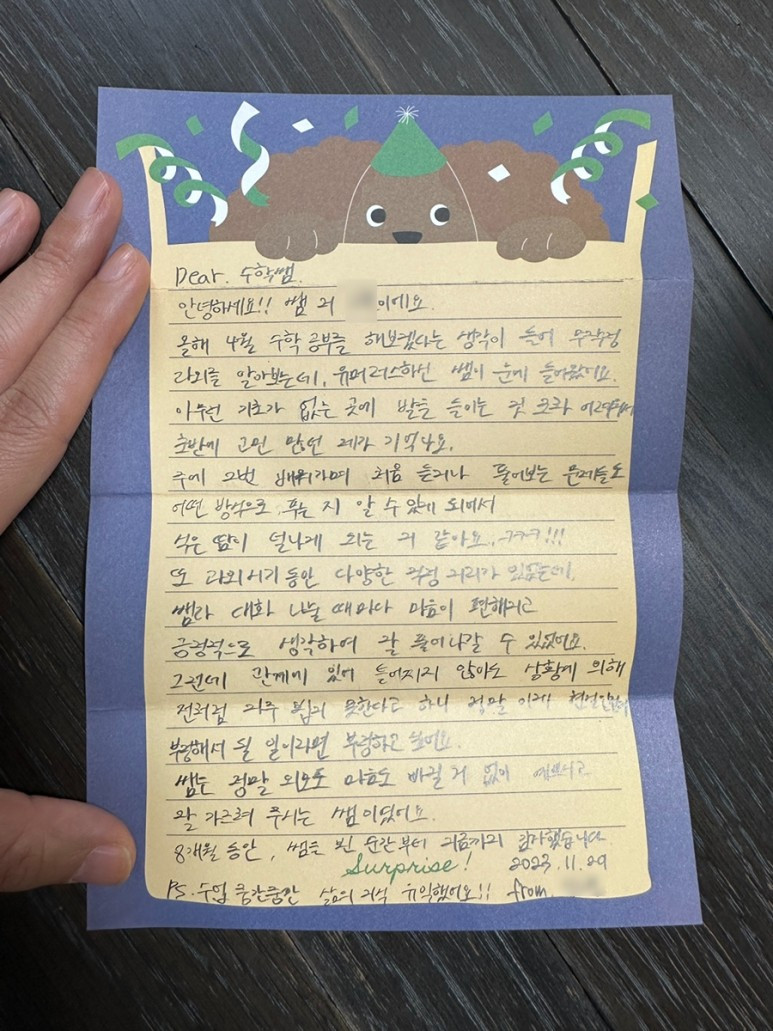 Dear. 수학쌤.
안녕하세요!! 쌤 저 이에요.
올해 4월 수학 공부를 해보겠다는 생각이 들어 무작정
과외를 알아보는데, 유머러스하신 쌤이 눈에 들어왔어요.
아무런 기초가 없는 곳에 발을 들이는 것 조차 어려워서
초반에 고민 많던 제가 기억나요.
주에 2번 배워가며 처음 듣거나 풀어보는 문제들도
어떤 방식으로 푸는 지 알 수 있게 되어서
식은 땀이 덜나게 되는 거 같아요. ㅋㅋㅋ!!!
또 과외하기 동안 다양한 걱정 거리가 있었는데,
쌤과 대화 나눌 때마다 마음이 편해지고
긍정적으로 생각하여 잘 풀어나갈 수 있었어요.
그런데 관계에 있어 틀어지지 않아도 상황에 의해
전처럼 자주 뵙지 못한다고 하니 정말 이게 현실인건지
부정해서 될 일이라면 부정하고 싶어요.
쌤은 정말 외모도 마음도 바랄 거 없이 예쁘시고
잘 가르쳐 주시는 쌤이었어요.
8개월 동안, 쌤을 뵌 순간부터 지금까지 감사했습니다
Surprise! 2023.11.29
PS. 수업 중간중간 삶의 지식 유익했어요!! from.